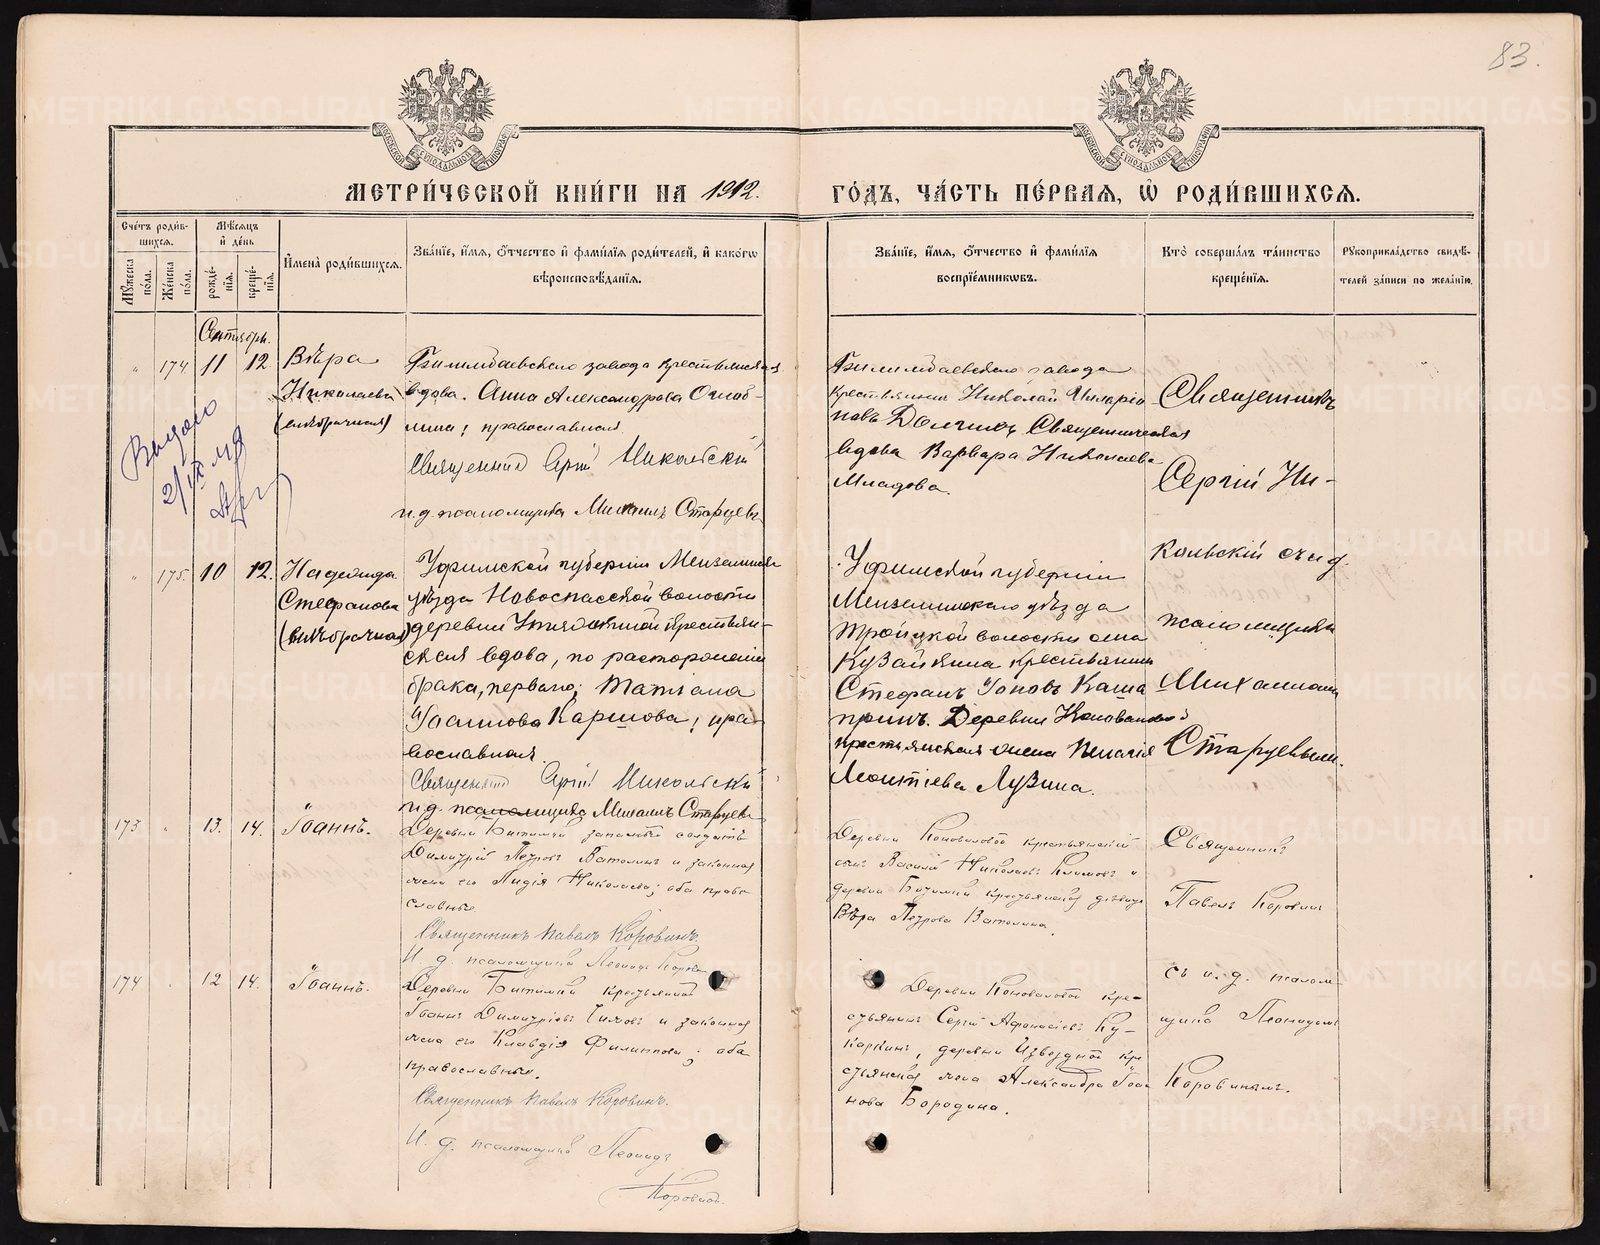 83.
МОСКОВСКОЙ СѴНОДАЛЬНОЙ ТИПОГРАФІИ
МОСКОВСКОЙ СѴНОДАЛЬНОЙ ТИПОГРАФІИ
МЕТРИ́ЧЕСКОЙ КНИ́ГИ НА 1912.
ГО́ДЪ, ЧА́СТЬ ПЕ́РВАЯ, Ѽ РОДИ́ВШИХСЯ.
Сче́тъ роди́в-
шихся.
Мꙋжеска по́ла.
Же́нска по́ла.
Мѣ́сяцъ
и҆ де́нь
рожде́-
нїѧ.
креще́-
нїѧ.
И҆мена̀ роди́вшихсѧ.
Зва́нїе, и҆́мѧ, ѻ҆́тчество и҆ фами́лїѧ роди́телей, и҆ како́гѡ
вѣроисповѣ́данїѧ.
Зва́нїе, и҆́мѧ, ѻ҆́тчество и҆ фами́лїѧ
воспрїе́мникѡвъ.
Кто̀ соверша́лъ та́инство
креще́нїѧ.
Рꙋкоприкла́дство свидѣ́-
телей за́писи по жела́нїю.
Сентябрь.
" 174 11 12. Вѣра
Николаева
(внѣбрачная)
Билимбаевскаго завода крестьянская
вдова. Анна Александрова Оглоб-
лина; православная
Священник Сергій Никольскій
и. д. псаломщика Михаилъ Старцевъ
Билимбаевскаго завода
крестьянинъ Николай Иларіо
новъ Священническая
вдова Варвара Николаева
Младова.
Священникъ
Сергій Ни-
кольскій съ и.д.
псаломщика
Михаилом
Старцевым.
Выдано
2/IX
" 175. 10 12. Надежда
Стефанова
(внѣбрачная)
Уфимской губерніи Мензелинска
уѣзда Новоспасской волости
деревни крестьян-
ская вдова, по расторженіи
брака, перваго; Татіана
Іоаннова Каршова; пра-
вославная.
Священник Сергій Никольскій
и.д. псаломщика Михаилъ Старцевъ
Уфимской губерніи
Мензелинскаго уѣзда
Троицкой волости села
Кузайкина крестьянинъ
Стефанъ Іоновъ Каша
принъ. Деревни Коноваловой
крестьянская жена Пелагія
Леонтіева Лузина.
173 " 13. 14. Іоаннъ.
Деревни Битимки запасный солдатъ
Димитрій Петровъ Ватолинъ и законная
жена его Лидія Николаева; оба право
славные
Священникъ Павелъ Коровинъ.
И. д. псаломщика Леонидъ Коровин
Деревни Коноваловой крестьянскій
сынъ Василій Николаевъ Климовъ и
деревни Битимки крестьянская дѣвица
Вѣра Петрова Ватолина.
Священникъ
Павелъ Коровинъ
съ и. д. псалом-
щика Леонидомъ
Коровинымъ.
174 " 12 14. Іоаннъ.
Деревни Битимки крестьянинъ
Іоаннъ Димитріевъ и законная
жена его Клавдія Филиппова; оба
православные.
Священникъ Павелъ Коровинъ.
И. д. псаломщика Леонидъ
Коровинъ.
Деревни Коноваловой кре-
стьянинъ Сергій Афанасіевъ Ку-
каркинъ, деревни Извездной кре
стьянская жена Александра Іоан
нова Бородина.
METRIKI.GASO-URAL.RU